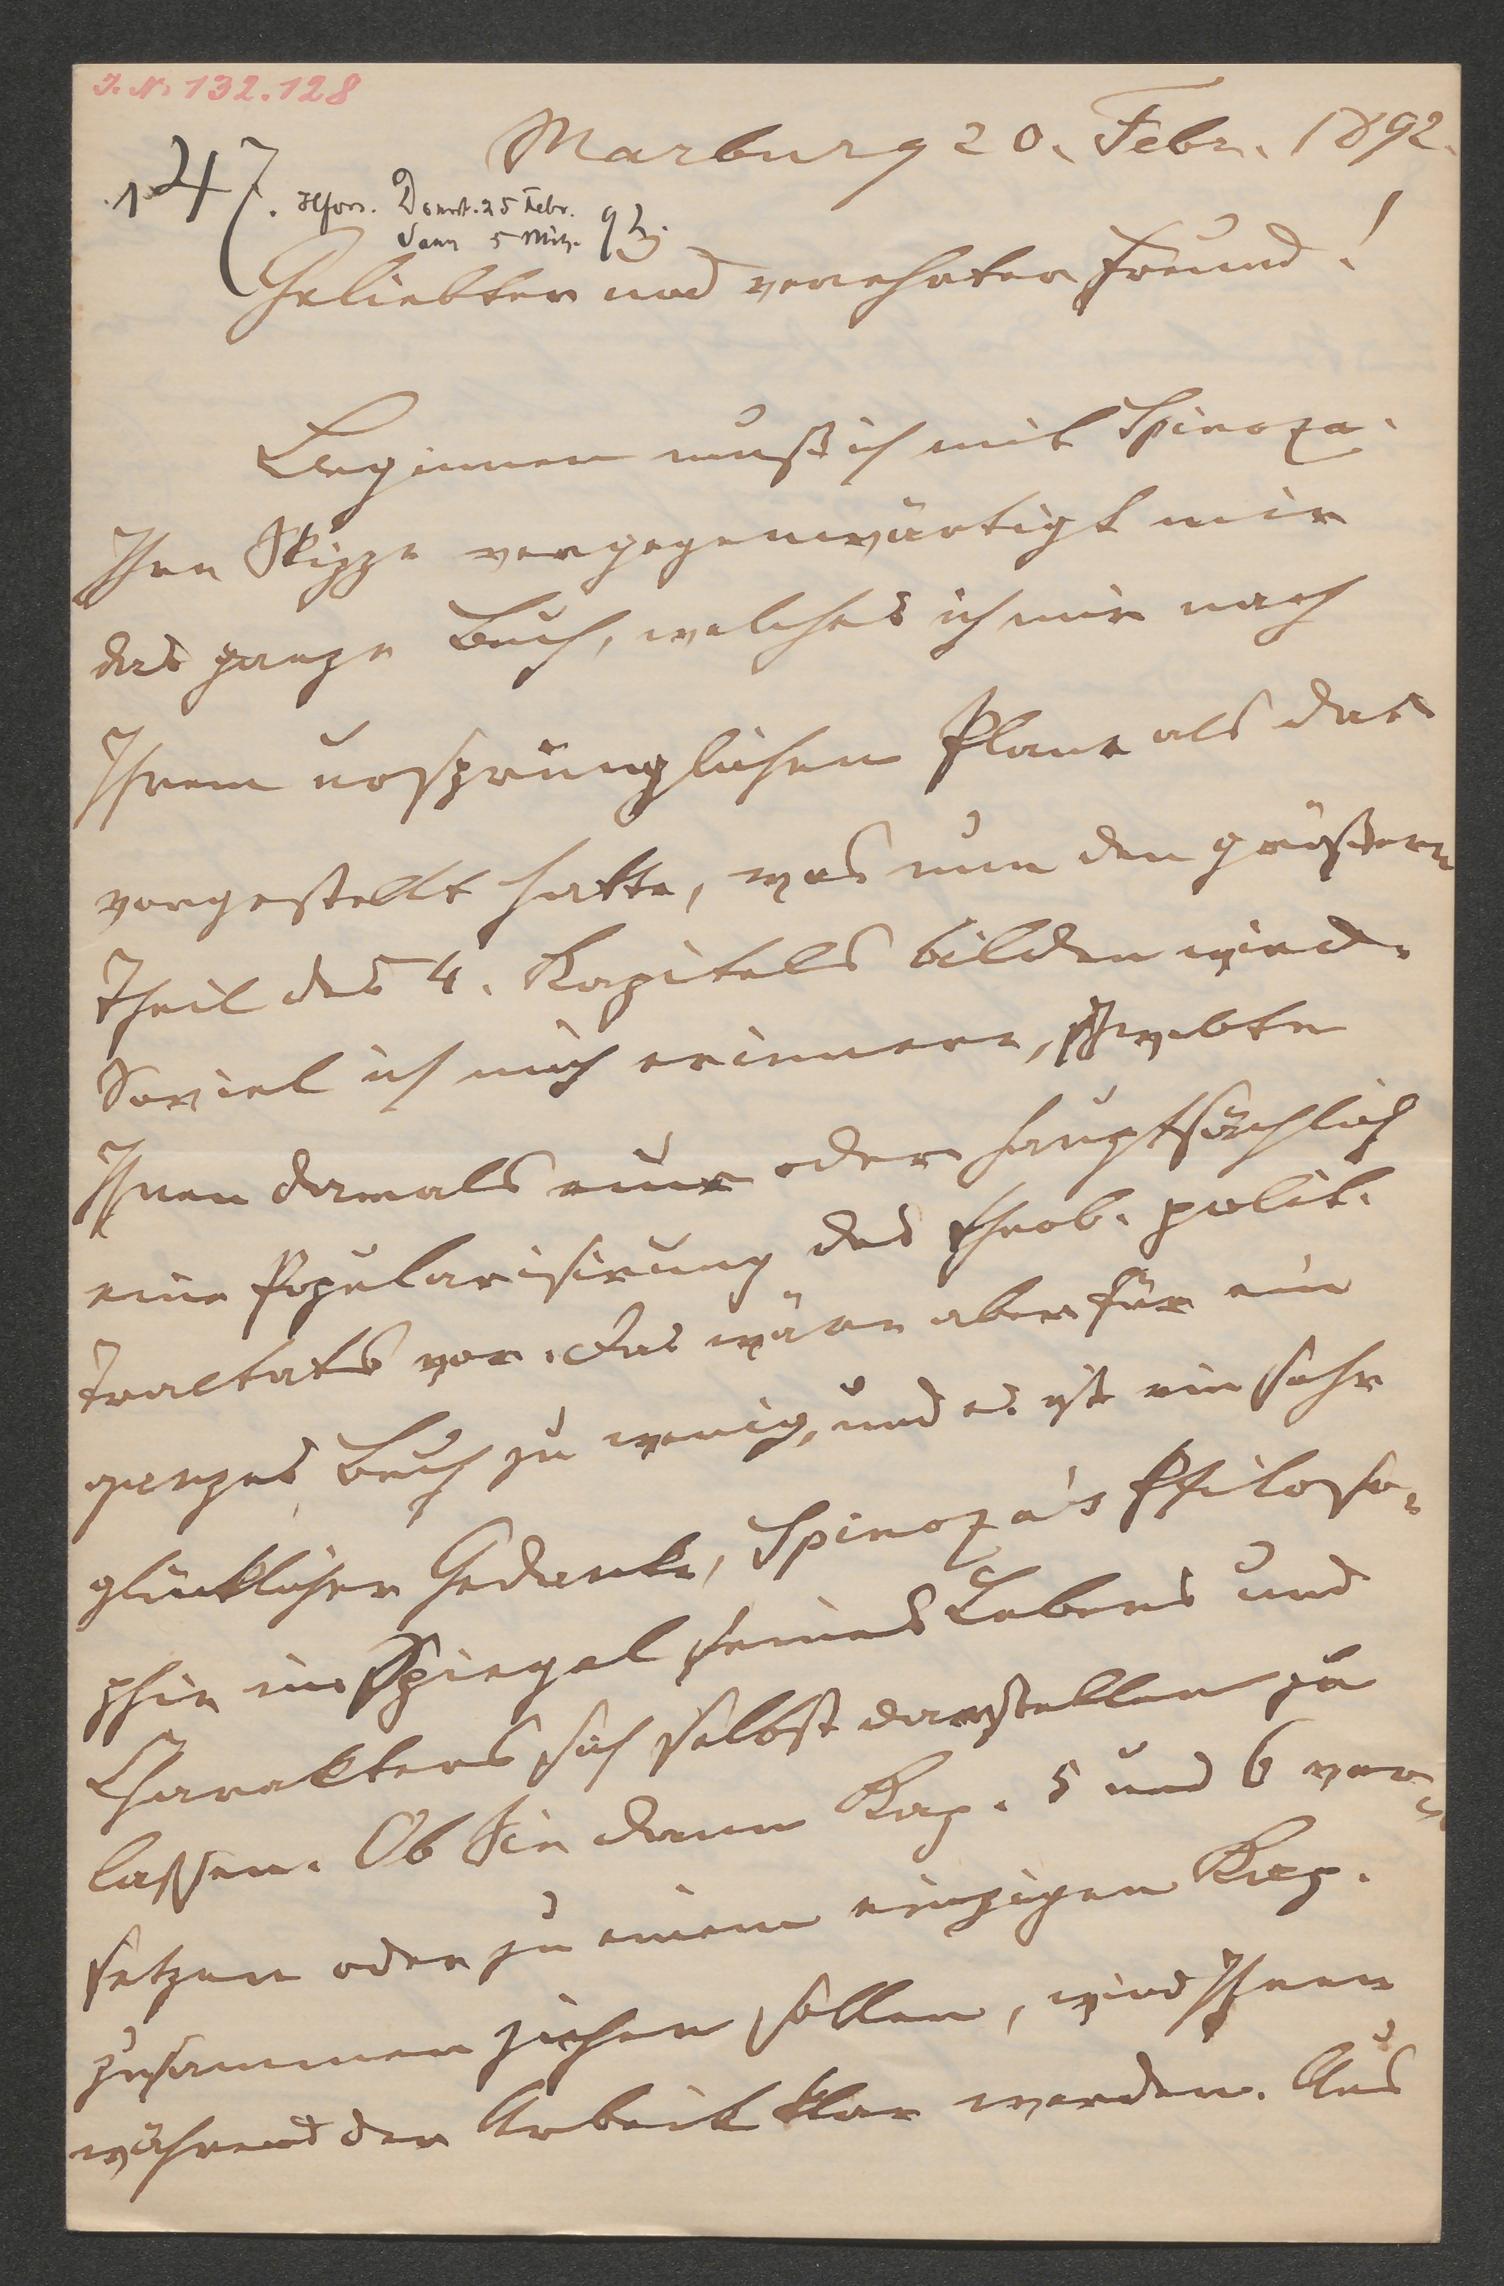 J. N. 132.128
Marburg 20. Febr. 1892.
147. Helfors. Donnst. 25 Febr.
5 Mrz. 92.
Geliebter und verehrter Freund!
Beginnen muß ich mit Spinoza.
Ihre Skizze vergegenwärtigt mir
das ganze Buch, welches ich mir nach
Ihrem ursprünglichen Plane als das
vorgestellt hatte, was nun den größern
Theil des 4. Kapitels bilden wird.
Soviel ich mich erinnere, schwebte
Ihnen damals nur oder hauptsächlich
eine Popularisirung des theol. polit.
Tractats vor. Das wäre aber für ein
ganzes Buch zu wenig, und es ist ein sehr
glücklicher Gedanke, Spinoza's Philoso-
phie im Spiegel seines Lebens und
Charakters sich selbst darstellen zu
lassen. Ob Sie dann Kap. 5 und 6 ver-
setzen oder zu einem einzigen Kap.
zusammen ziehen sollen, wird Ihnen
während der Arbeit klar werden. Aus